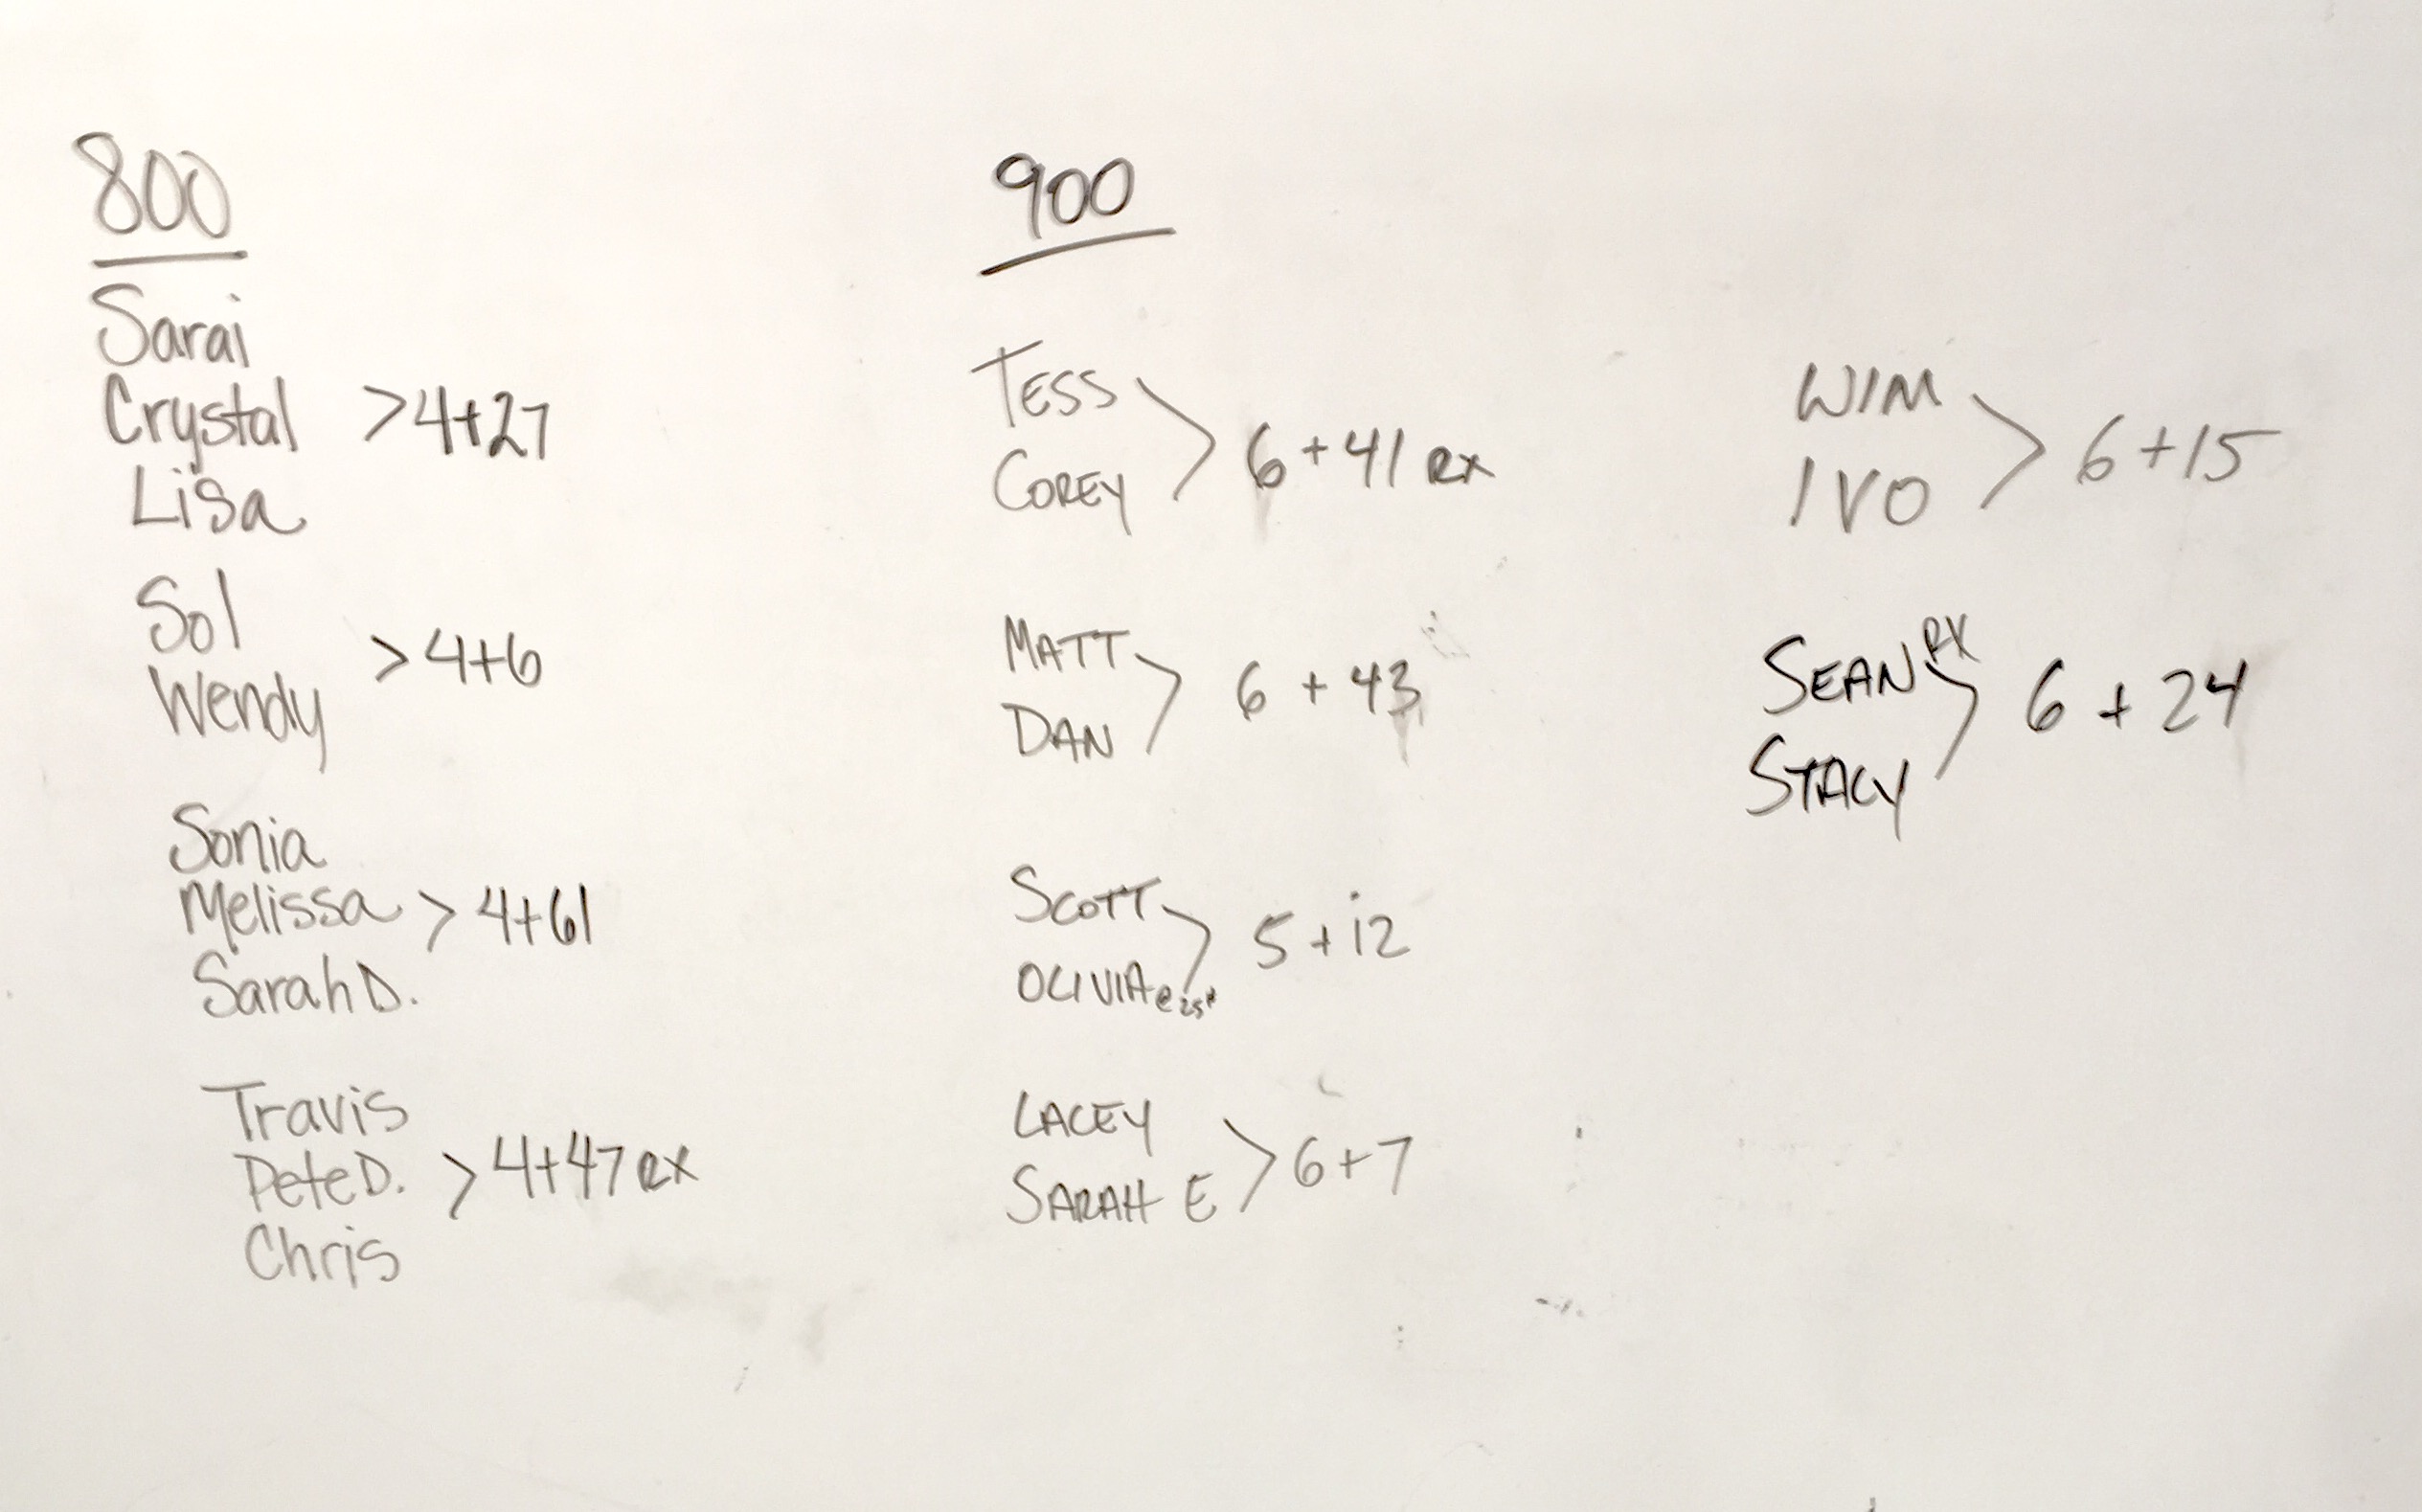 800
Sarai
Crystal >4+27
Lisa
Sol
Wendy >4+6
Sonia
Melissa > 4+61
Sarah D.
Travis
Pete D. > 4+47 RX
Chris
900
TESS
COREY > 6 + 41 RX
MATT
DAN > 6 + 43
SCOTT
OLIVIA @ 25# > 5 + 12
LACEY
SARAH E > 6+7
WIM
IVO > 6+15
SEAN RX
STACY > 6 + 24